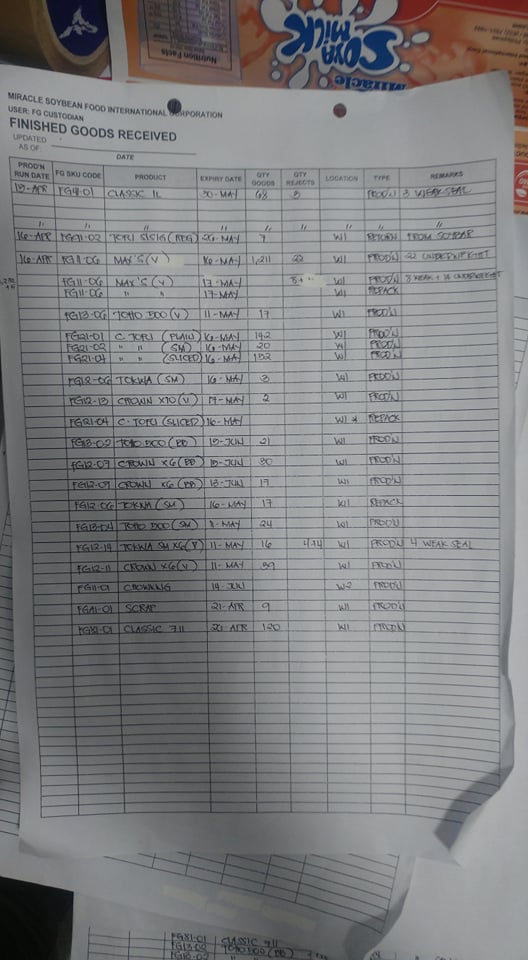 Nutrition Facts
SOYA
MILK
Miracle
MIRACLE SOYBEAN FOOD INTERNATIONAL CORPORATION
USER: FG CUSTODIAN
FINISHED GOODS RECEIVED
UPDATED
AS OF
DATE
PROD'N RUN DATE FG SKU CODE PRODUCT EXPIRY DATE QTY GOODS QTY REJECTS LOCATION TYPE REMARKS
15-APR FG41-01 CLASSIC 1L 30-MAY 68 3 PROD'N 3 WEAK SEAL
" " " " " " " " "
16-APR FG91-02 TOFU SISIG (REG) 26-MAY 7 W1 RETURN FROM SCRAP
16-APR FG11-06 MAX'S (V) 16-MAY 1,211 22 W1 PROD'N 22 UNDERWEIGHT
FG11-06 MAX'S (V) 17-MAY W1 PROD'N
FG11-06 " " 17-MAY W1 REPACK
FG13-06 TOHO DOO (V) 11-MAY 17 W1 PROD'N
FG21-01 C. TOFU (PLAIN) 16-MAY 142 W1 PROD'N
FG21-02 " " (SM) 16-MAY 20 W1 PROD'N
FG21-04 " " (SLICED) 16-MAY 152 W1 PROD'N
FG12-06 TOKWA (SM) 16-MAY 3 W1 PROD'N
FG12-13 CROWN X10 (V) 17-MAY 2 W1 PROD'N
FG21-04 C-TOFU (SLICED) 16-MAY W1 * REPACK
FG13-02 (BB) 15-JUN 21 W1 PROD'N
FG12-07 CROWN X6 (BB) 15-JUN 30 W1 PROD'N
CROWN X6 (BB) 13-JUN 17 W1 PROD'N
FG12-06 TOKWA (SM) 16-MAY 17 W1 REPACK
FG13-04 (SM) 24 W1 PROD'N
FG12-14 TOKWA SM X6 (V) 11-MAY 16 W1 PROD'N 4 WEAK SEAL
FG12-11 CROWN X6 (V) 11-MAY 39 W1 PROD'N
FG11-01 14-JUN W2 PROD'N
FGA1-01 SCRAP 21-APR 9 W1 PROD'N
CLASSIC 711 26-APR 120 W1 PROD'N
FG31-01 CLASSIC 711
FG13-02 (BB)